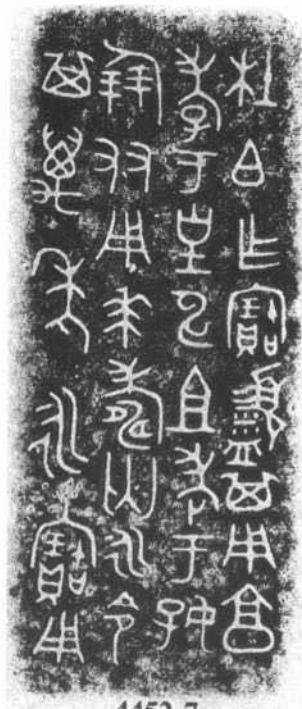 杜白乍寶盨其用亯
孝于皇申且考于好
倗友用𠦪壽匄永令
其萬年永寶用
4452.7